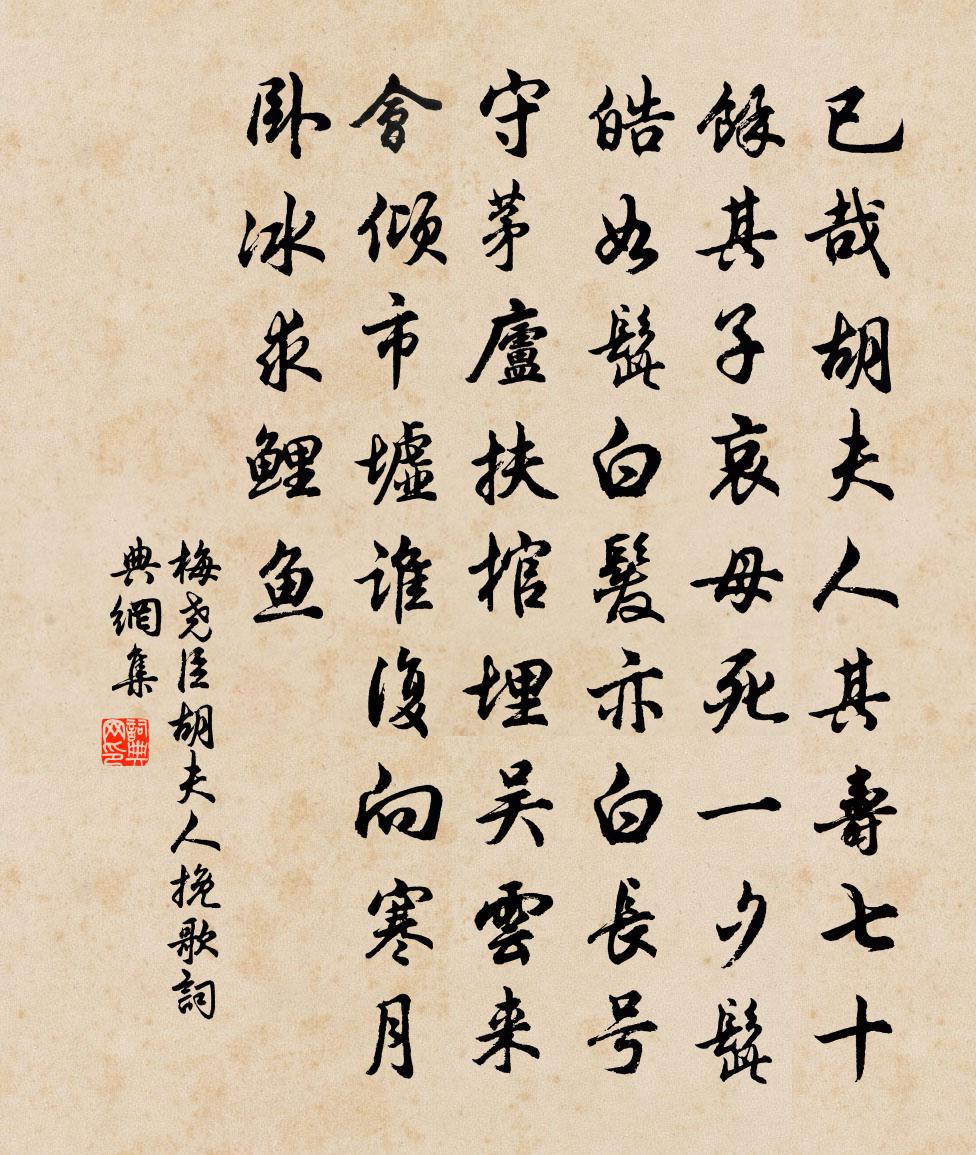 已哉胡夫人其壽七十
餘其子哀母死一夕髭
皓如髭白髮亦白長号
守茅廬扶棺埋吴雲来
會傾市墟誰復向寒月
卧冰求鯉魚
梅堯臣胡夫人挽歌詞
典網集
詞典網印